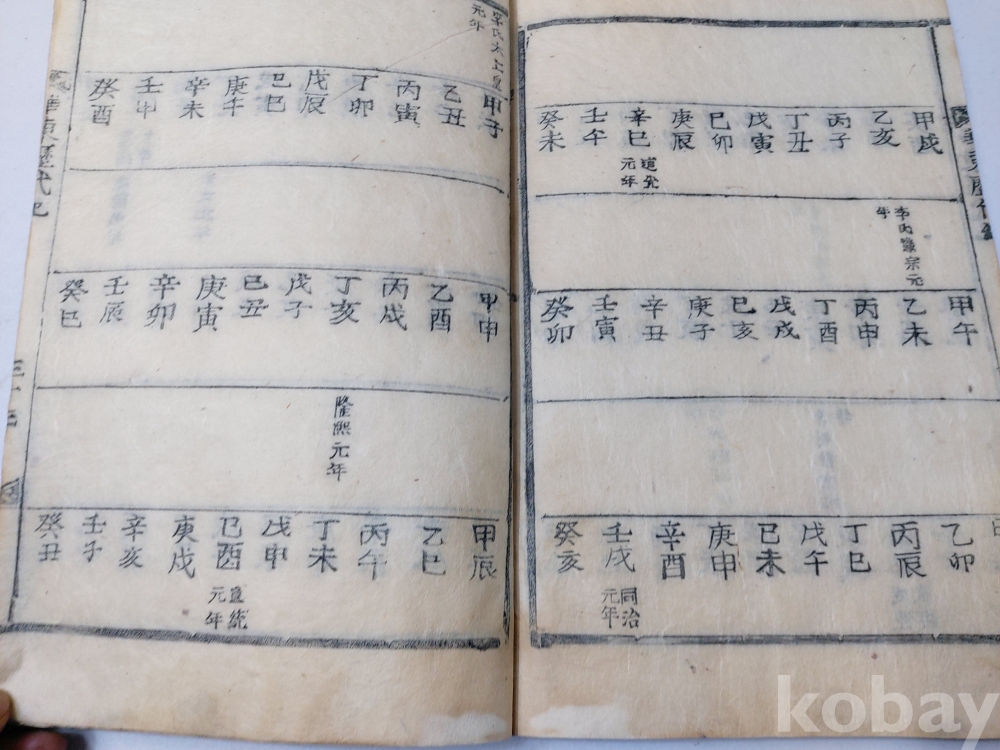 甲戌
乙亥
丙子
丁丑
戊寅
己卯
庚辰
辛巳
道光
元年
壬午
癸未
宗元
年
甲午
乙未
丙申
丁酉
戊戌
己亥
庚子
辛丑
壬寅
癸卯
乙卯
丙辰
丁巳
戊午
己未
庚申
辛酉
壬戌
同治
元年
癸亥
李氏太上皇
元年
甲子
乙丑
丙寅
丁卯
戊辰
己巳
庚午
辛未
壬申
癸酉
甲申
乙酉
丙戌
丁亥
戊子
己丑
庚寅
辛卯
壬辰
癸巳
隆熙元年
甲辰
乙巳
丙午
丁未
戊申
己酉
宣統
元年
庚戌
辛亥
壬子
癸丑
華東歷代紀
kobay